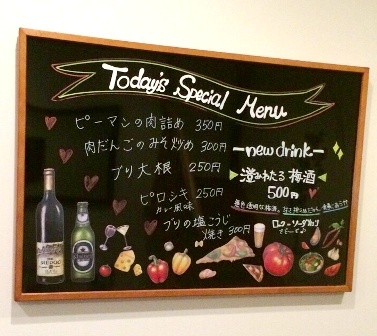 Today's Special Menu
ピーマンの肉詰め 350円
肉だんごのみそ炒め 300円
ブリ大根 250円
ピロシキ 250円
カレー風味
ブリの塩こうじ
焼き 300円
-new drink-
澄みわたる 梅酒
500円
ロック・ソーダ割り